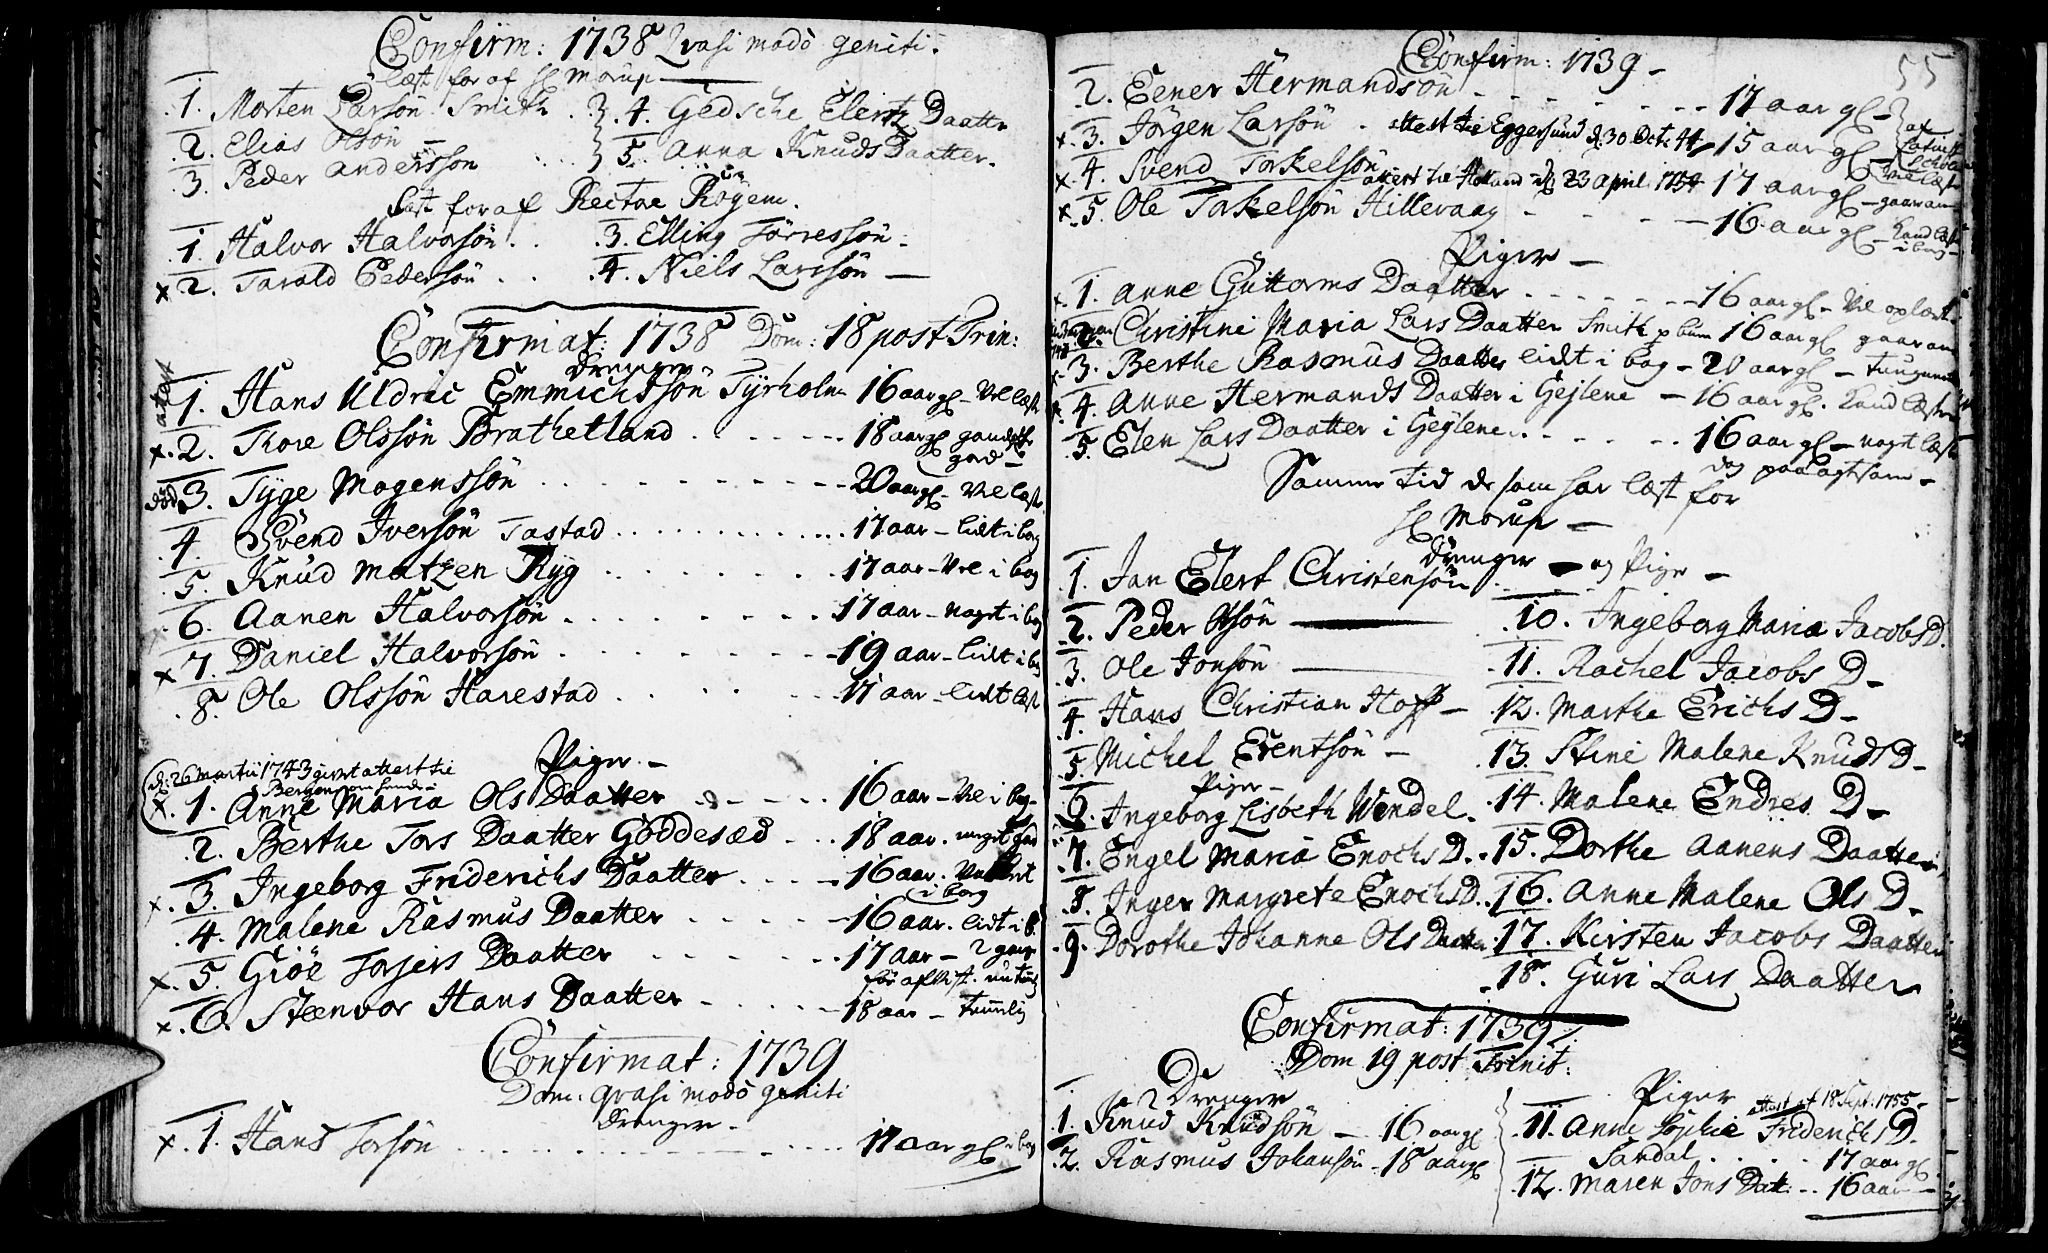 Confirm: 1738 Qvasi modo geniti.
læst for af H Morup
1. Morten Larsøn Smith
2. Elias Olsøn
3. Peder anderssøn
4. Gedsche Elertz Daatter
5. Anna Knuds Daatter.
Læst for af Rector Rögem.
1. Halvor Halvorsøn
x 2. Tarald Pedersøn
3. Elling Törressøn
4. Niels Larssøn
Confirmat: 1738 Dom: 18 post Trin:
Drenger
attest 1. Hans Uldric Emmichssøn Tyrholm 16 aar gl - vel læst
x. 2. Thore Olssøn Brathetland 18 aar gl
god
död 3. Tyge Mogenssøn 20 aar gl - vel læst
4. Svend Iversøn Tastad 17 aar - lidt i bog
5. Knud Matzen Ryg 17 aar - vel i bog
6. Aanen Halvorsøn 17 aar - noget i bog
x 7. Daniel Halvorsøn 19 aar - lidt i bog
8. Ole Olssøn Harestad 17 aar - lidt læst
Piger -
d: 26 Martii 1743 givet attest til
Bergen
x. 1. Anne Maria Ols Daatter 16 aar - vel i bog
2. Berthe Tors Daatter Goddesæd 18 aar. noget
x. 3. Ingeborg Friderichs Daatter 16 aar.
i bog
4. Malene Rasmus Daatter 16 aar. lidt i b.
x. 5. Giöe Torjers Daatter 17 aar - 2 gange
för afvist. nu
x. 6. Steenvor Hans Daatter 18 aar - tummelig
Confirmat: 1739
Dom. qvasi modo geniti
Drenger -
x. 1. Hans Torsøn 17 aar gl i bog
Confirm: 1739 - 55
2. Eener Hermandsøn 17 aar gl
x. 3. Jörgen Larsøn. attest til Eggersund d. 30 Oct: 44 15 aar gl
x. 4. Svend Torkelsøn attest til Holland d 23 april 1754 17 aar gl
x. 5. Ole Torkelsøn Hillevaag 16 aar gl - kand læse
i bog
Piger -
x. 1. Anne Guttorms Daatter 16 aar gl - vel oplært
2. Christine Maria Lars Daatter Smith 16 aar gl gaar an
x. 3. Berthe Rasmus Daatter lidt i bog - 20 aar gl - tungnem
4. Anne Hermands Daatter i Gejlene - 16 aar gl. kand læse
5. Elen Lars Daatter i Gejlene 16 aar gl - noget læst
dog paa agtsom -
Samme tid de som har læst for
H Morup -
Drenger - og Piger -
1. Jan Elert Christensøn
2. Peder Olsøn
3. Ole Jonsøn
4. Hans Christian Hoff -
5. Michel Evertsøn -
Piger -
6. Ingeborg Lisbeth Wendel.
7. Engel Maria Enochs D.
8. Inger Margrete Enochs D.
9. Dorothe Johanne Ols Daatter
10. Ingeborg Maria Jacobs D.
11. Rachel Jacobs D -
12. Marthe Erichs D -
13. Stine Malene Knuds D -
14. Malene Endres D -
15. Dorthe Aanens Daatter
16. Anne Malene Ols D -
17. Kirsten Jacobs Daatter
18. Guri Lars Daatter
Confirmat: 1739
Dom 19 post Trinit:
Drenger
1. Knud Knudsøn - 16 aar gl
2. Rasmus Johansøn - 18 aar gl
Piger
attest af 18 Sept: 1755 -
11. Anne Sophie Friderichs D
Sandal 17 aar gl
12. Maren Jons Datt: 16 aar